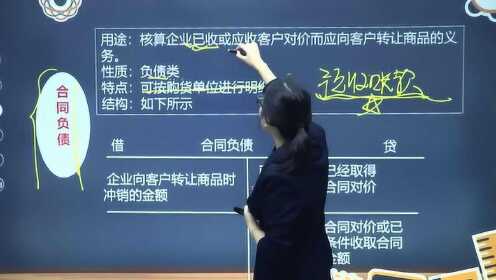 用途：核算企业已收或应收客户对价而应向客户转让商品的义
务。
性质：负债类
特点：可按购货单位进行明细
结构：如下所示
预收账款
合同负债
借 合同负债 贷
企业向客户转让商品时
冲销的金额
已经取得
合同对价
合同对价或已
条件收取合同
金额